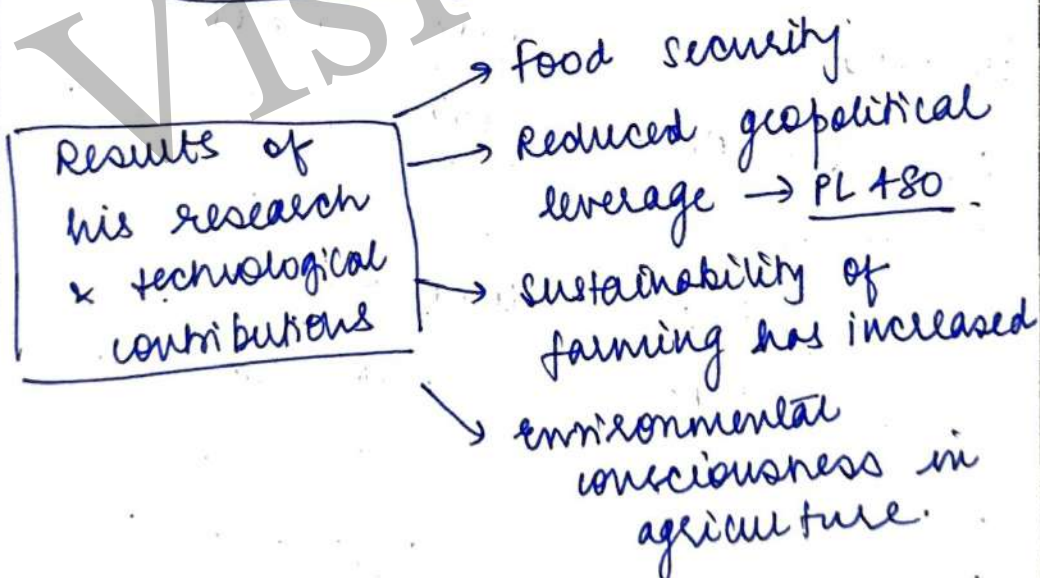 VISI
Results of
his research
& technological
contributions
→ Food security.
→ Reduced geopolitical
leverage → PL 480.
→ sustainability of
farming has increased
→ environmental
consciousness in
agriculture.